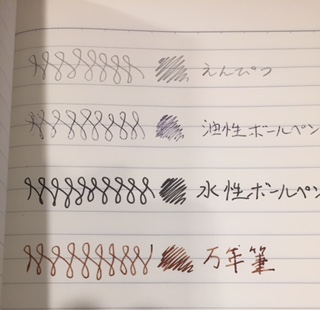 えんぴつ
油性ボールペン
水性ボールペン
万年筆